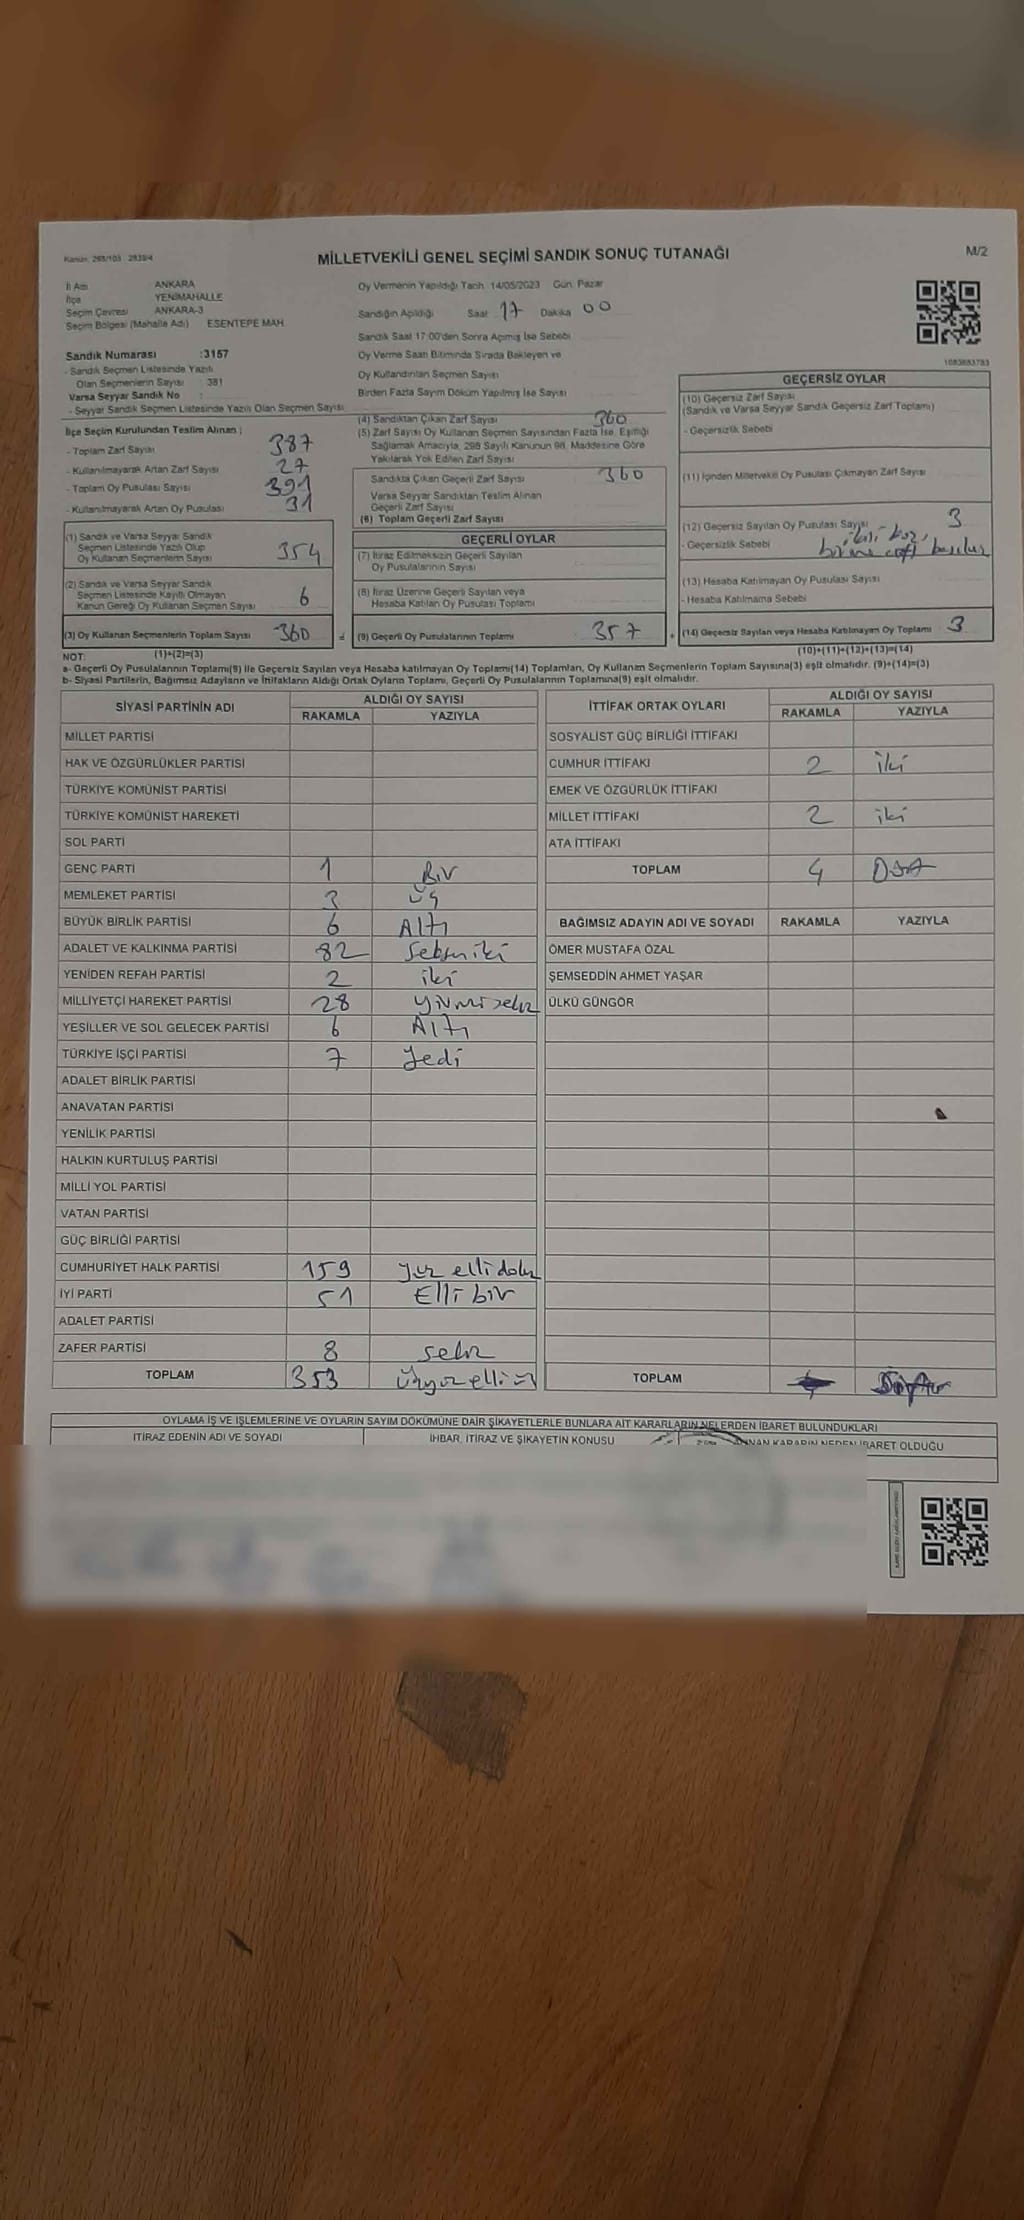 Kanun: 298/103 - 2839/4
MİLLETVEKİLİ GENEL SEÇİMİ SANDIK SONUÇ TUTANAĞI
M/2
İl Adı ANKARA
İlçe YENİMAHALLE
Seçim Çevresi ANKARA-3
Seçim Bölgesi (Mahalle Adı) ESENTEPE MAH.
Sandık Numarası :3157
- Sandık Seçmen Listesinde Yazılı
Olan Seçmenlerin Sayısı : 381
Varsa Seyyar Sandık No :
- Seyyar Sandık Seçmen Listesinde Yazılı Olan Seçmen Sayısı
İlçe Seçim Kurulundan Teslim Alınan ;
- Toplam Zarf Sayısı 387
- Kullanılmayarak Artan Zarf Sayısı 27
- Toplam Oy Pusulası Sayısı 391
- Kullanılmayarak Artan Oy Pusulası 31
(1) Sandık ve Varsa Seyyar Sandık
Seçmen Listesinde Yazılı Olup
Oy Kullanan Seçmenlerin Sayısı 354
(2) Sandık ve Varsa Seyyar Sandık
Seçmen Listesinde Kayıtlı Olmayan
Kanun Gereği Oy Kullanan Seçmen Sayısı 6
(3) Oy Kullanan Seçmenlerin Toplam Sayısı 360 =
Oy Vermenin Yapıldığı Tarih 14/05/2023 Gün: Pazar
Sandığın Açıldığı Saat 17 Dakika 00
Sandık Saat 17:00'den Sonra Açılmış İse Sebebi
Oy Verme Saati Bitiminde Sırada Bekleyen ve
Oy Kullandırılan Seçmen Sayısı
Birden Fazla Sayım Döküm Yapılmış İse Sayısı
(4) Sandıktan Çıkan Zarf Sayısı 360
(5) Zarf Sayısı Oy Kullanan Seçmen Sayısından Fazla İse, Eşitliği
Sağlamak Amacıyla, 298 Sayılı Kanunun 98. Maddesine Göre
Yakılarak Yok Edilen Zarf Sayısı
Sandıkta Çıkan Geçerli Zarf Sayısı 360
Varsa Seyyar Sandıktan Teslim Alınan
Geçerli Zarf Sayısı
(6) Toplam Geçerli Zarf Sayısı
GEÇERLİ OYLAR
(7) İtiraz Edilmeksizin Geçerli Sayılan
Oy Pusulalarının Sayısı
(8) İtiraz Üzerine Geçerli Sayılan veya
Hesaba Katılan Oy Pusulası Toplamı
(9) Geçerli Oy Pusulalarının Toplamı 357 +
1083883783
GEÇERSİZ OYLAR
(10) Geçersiz Zarf Sayısı
(Sandık ve Varsa Seyyar Sandık Geçersiz Zarf Toplamı)
- Geçersizlik Sebebi
(11) İçinden Milletvekili Oy Pusulası Çıkmayan Zarf Sayısı
(12) Geçersiz Sayılan Oy Pusulası Sayısı 3
- Geçersizlik Sebebi ikisi boş,
birine
(13) Hesaba Katılmayan Oy Pusulası Sayısı
- Hesaba Katılmama Sebebi
(14) Geçersiz Sayılan veya Hesaba Katılmayan Oy Toplamı 3
NOT: (1)+(2)=(3) (10)+(11)+(12)+(13)=(14)
a- Geçerli Oy Pusulalarının Toplamı(9) ile Geçersiz Sayılan veya Hesaba katılmayan Oy Toplamı(14) Toplamları, Oy Kullanan Seçmenlerin Toplam Sayısına(3) eşit olmalıdır. (9)+(14)=(3)
b- Siyasi Partilerin, Bağımsız Adayların ve İttifakların Aldığı Ortak Oyların Toplamı, Geçerli Oy Pusulalarının Toplamına(9) eşit olmalıdır.
SİYASİ PARTİNİN ADI ALDIĞI OY SAYISI
RAKAMLA YAZIYLA
MİLLET PARTİSİ
HAK VE ÖZGÜRLÜKLER PARTİSİ
TÜRKİYE KOMÜNİST PARTİSİ
TÜRKİYE KOMÜNİST HAREKETİ
SOL PARTİ
GENÇ PARTİ 1 Bir
MEMLEKET PARTİSİ 3 üç
BÜYÜK BİRLİK PARTİSİ 6 Altı
ADALET VE KALKINMA PARTİSİ 82 Seksen iki
YENİDEN REFAH PARTİSİ 2 iki
MİLLİYETÇİ HAREKET PARTİSİ 28 Yirmi sekiz
YEŞİLLER VE SOL GELECEK PARTİSİ 6 Altı
TÜRKİYE İŞÇİ PARTİSİ 7 Yedi
ADALET BİRLİK PARTİSİ
ANAVATAN PARTİSİ
YENİLİK PARTİSİ
HALKIN KURTULUŞ PARTİSİ
MİLLİ YOL PARTİSİ
VATAN PARTİSİ
GÜÇ BİRLİĞİ PARTİSİ
CUMHURİYET HALK PARTİSİ 159 Yüz elli dokuz
İYİ PARTİ 51 Elli bir
ADALET PARTİSİ
ZAFER PARTİSİ 8 Sekiz
TOPLAM 353 üçyüz elli üç
İTTİFAK ORTAK OYLARI ALDIĞI OY SAYISI
RAKAMLA YAZIYLA
SOSYALİST GÜÇ BİRLİĞİ İTTİFAKI
CUMHUR İTTİFAKI 2 iki
EMEK VE ÖZGÜRLÜK İTTİFAKI
MİLLET İTTİFAKI 2 iki
ATA İTTİFAKI
TOPLAM 4 Dört
BAĞIMSIZ ADAYIN ADI VE SOYADI RAKAMLA YAZIYLA
ÖMER MUSTAFA ÖZAL
ŞEMSEDDİN AHMET YAŞAR
ÜLKÜ GÜNGÖR
TOPLAM
OYLAMA İŞ VE İŞLEMLERİNE VE OYLARIN SAYIM DÖKÜMÜNE DAİR ŞİKAYETLERLE BUNLARA AİT KARARLARIN NELERDEN İBARET BULUNDUKLARI
İTİRAZ EDENİN ADI VE SOYADI İHBAR, İTİRAZ VE ŞİKAYETİN KONUSU KARARIN NEDEN İBARET OLDUĞU